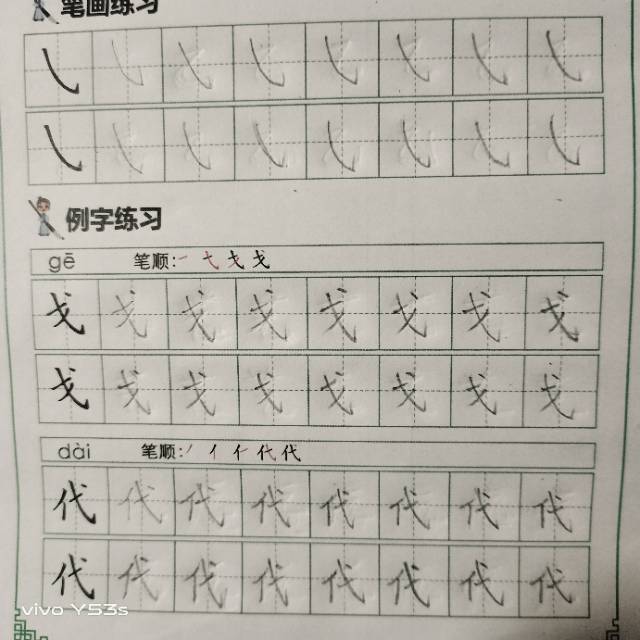 笔画练习
㇂ ㇂ ㇂ ㇂ ㇂ ㇂ ㇂ ㇂
㇂ ㇂ ㇂ ㇂ ㇂ ㇂ ㇂ ㇂
例字练习
gē 笔顺: 一 弋 戈 戈
戈 戈 戈 戈 戈 戈 戈 戈
戈 戈 戈 戈 戈 戈 戈 戈
dài 笔顺: 丿 亻 仁 代 代
代 代 代 代 代 代 代 代
代 代 代 代 代 代 代 代
vivo Y53s